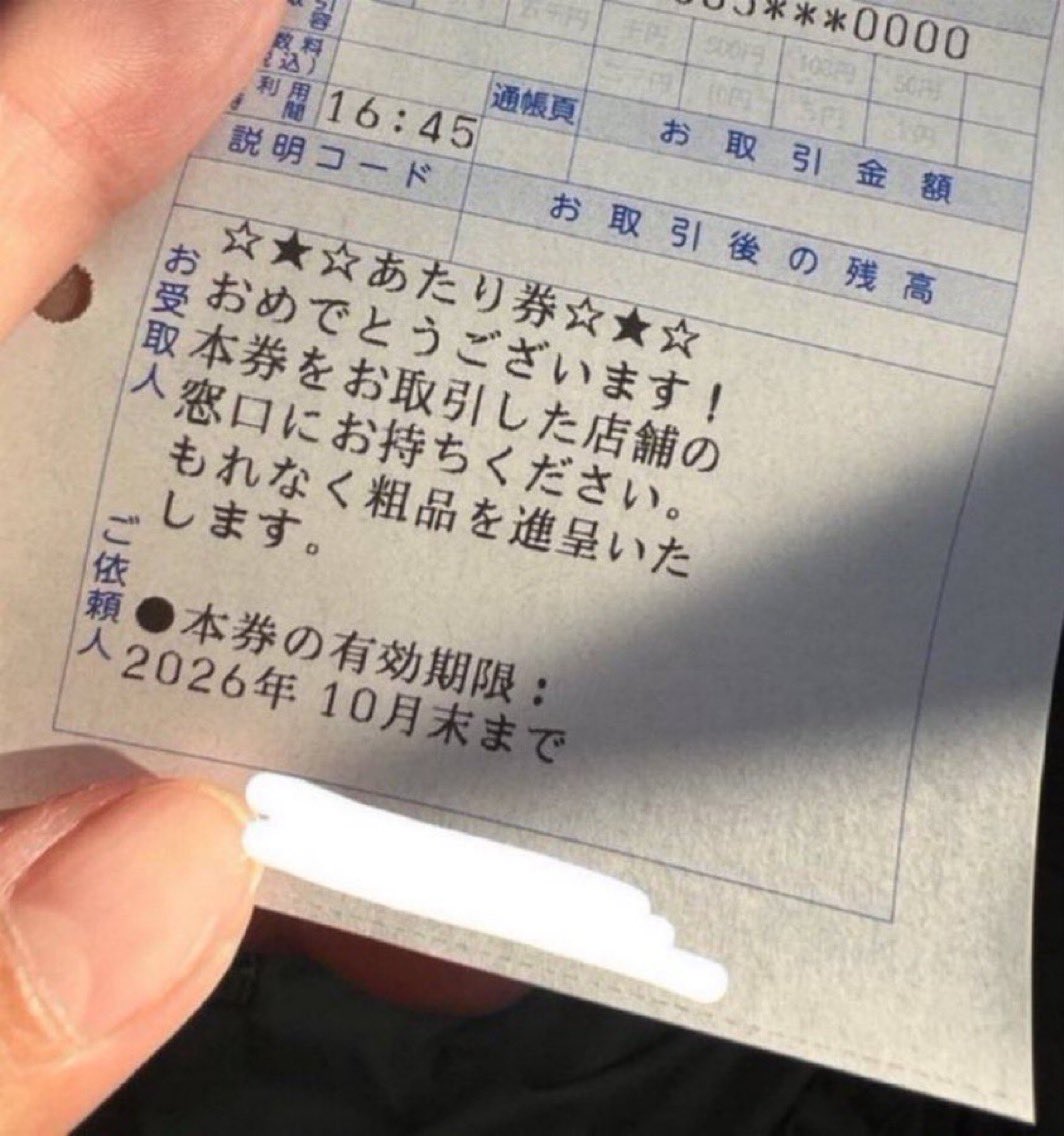 ***0000
16:45
通帳頁
説明コード
お取引金額
お取引後の残高
お受取人
☆★☆あたり券☆★☆
おめでとうございます!
本券をお取引した店舗の
窓口にお持ちください。
もれなく粗品を進呈いた
します。
ご依頼人
●本券の有効期限:
2026年 10月末まで